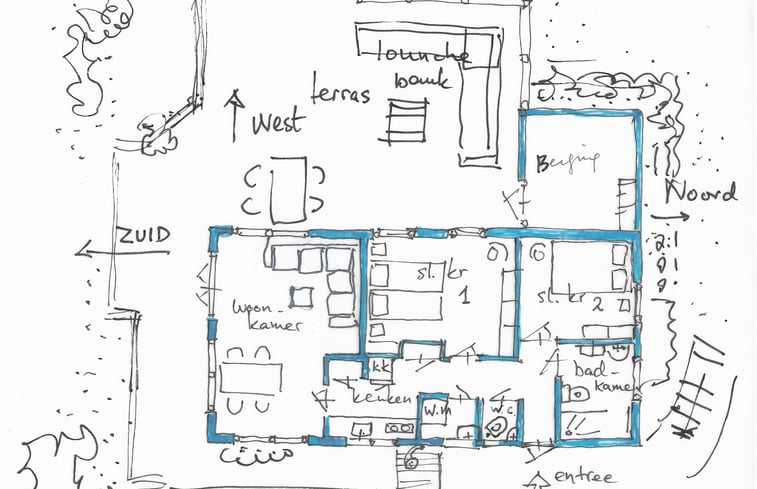 lounche
bank
terras
West
Berging
Noord
ZUID
sl. kr
1
sl. kr
2
woon-
kamer
kk
bad-
kamer
keuken
W.M
W.C.
entree